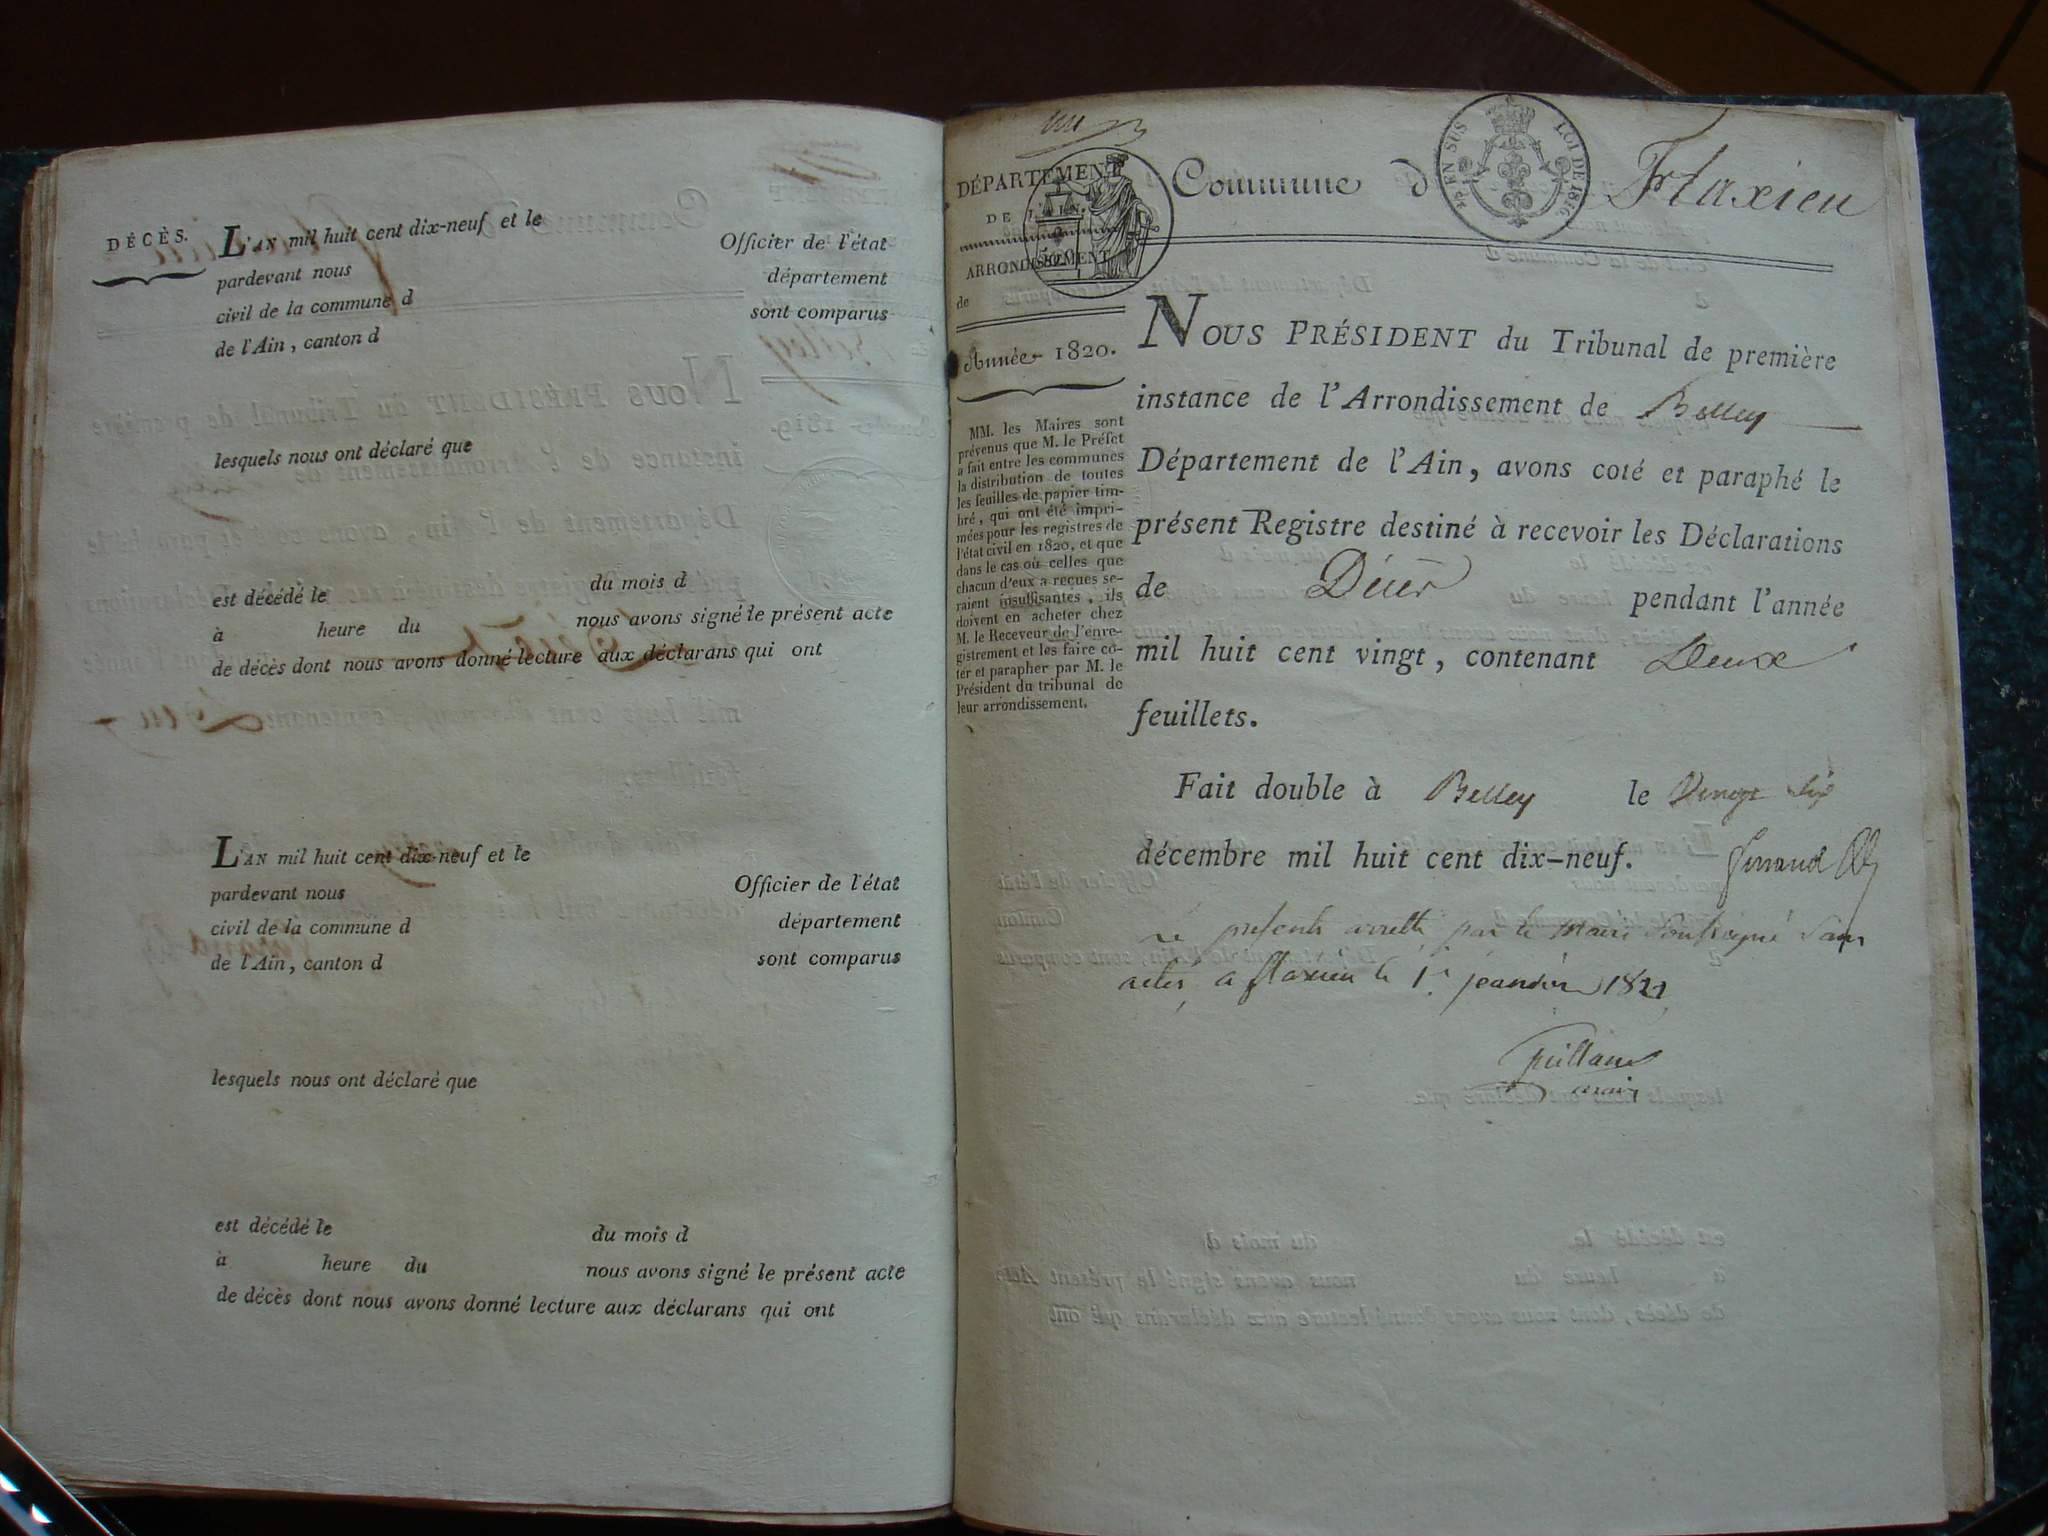 DÉCÈS.
L'AN mil huit cent dix-neuf et le
pardevant nous Officier de l'état
civil de la commune d département
de l'Ain, canton d sont comparus
lesquels nous ont déclaré que
est décédé le du mois d
à heure du nous avons signé le présent acte
de décès dont nous avons donné lecture aux déclarans qui ont
L'AN mil huit cent dix-neuf et le
pardevant nous Officier de l'état
civil de la commune d département
de l'Ain, canton d sont comparus
lesquels nous ont déclaré que
est décédé le du mois d
à heure du nous avons signé le présent acte
de décès dont nous avons donné lecture aux déclarans qui ont
DÉPARTEMENT
DE L'AIN.
ARRONDISSEMENT
de
Année 1820.
MM. les Maires sont
prévenus que M. le Préfet
a fait entre les communes
la distribution de toutes
les feuilles de papier tim-
bré, qui ont été impri-
mées pour les registres de
l'état civil en 1820, et que
dans le cas où celles que
chacun d'eux a reçues se-
raient insuffisantes, ils
doivent en acheter chez
M. le Receveur de l'enre-
gistrement et les faire co-
ter et parapher par M. le
Président du tribunal de
leur arrondissement.
Commune d Flaxieu
EN SUS LOI DE 1816
NOUS PRÉSIDENT du Tribunal de première
instance de l'Arrondissement de Belley
Département de l'Ain, avons coté et paraphé le
présent Registre destiné à recevoir les Déclarations
de Décès pendant l'année
mil huit cent vingt, contenant Deux
feuillets.
Fait double à Belley le Vingt six
décembre mil huit cent dix-neuf.
Le present arretté par le maire soussigné sans
actes a flaxieu le 1er 1821
maire